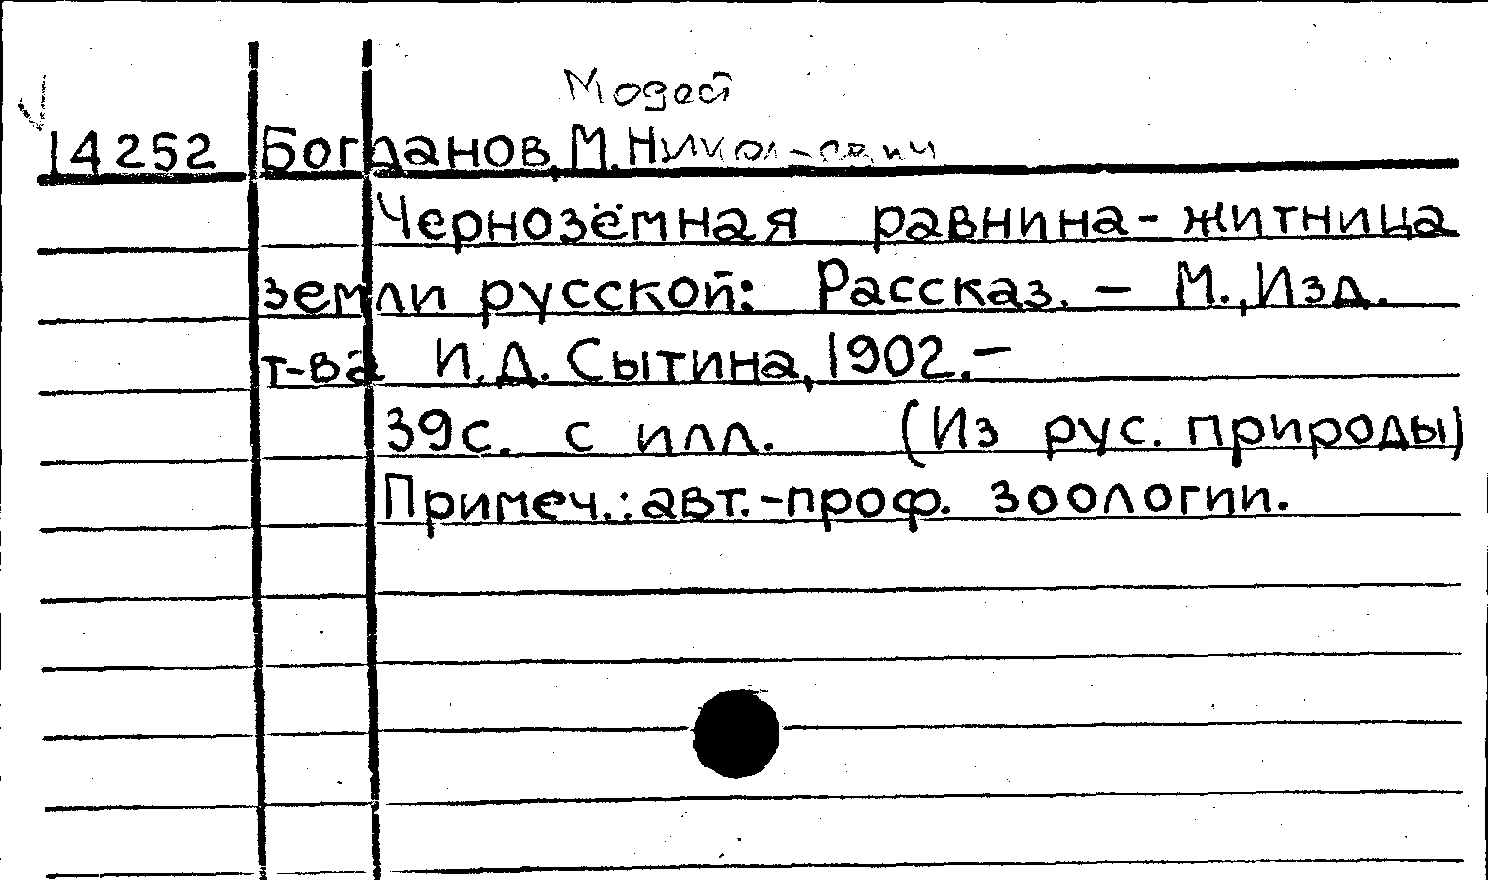 Модест
14252 Богданов, М. Николаевич
Чернозёмная равнина - житница
земли русской: Рассказ. — М., Изд.
т-ва И.Д. Сытина, 1902. —
39с. с илл. (Из рус. природы)
Примеч.: авт.-проф. зоологии.